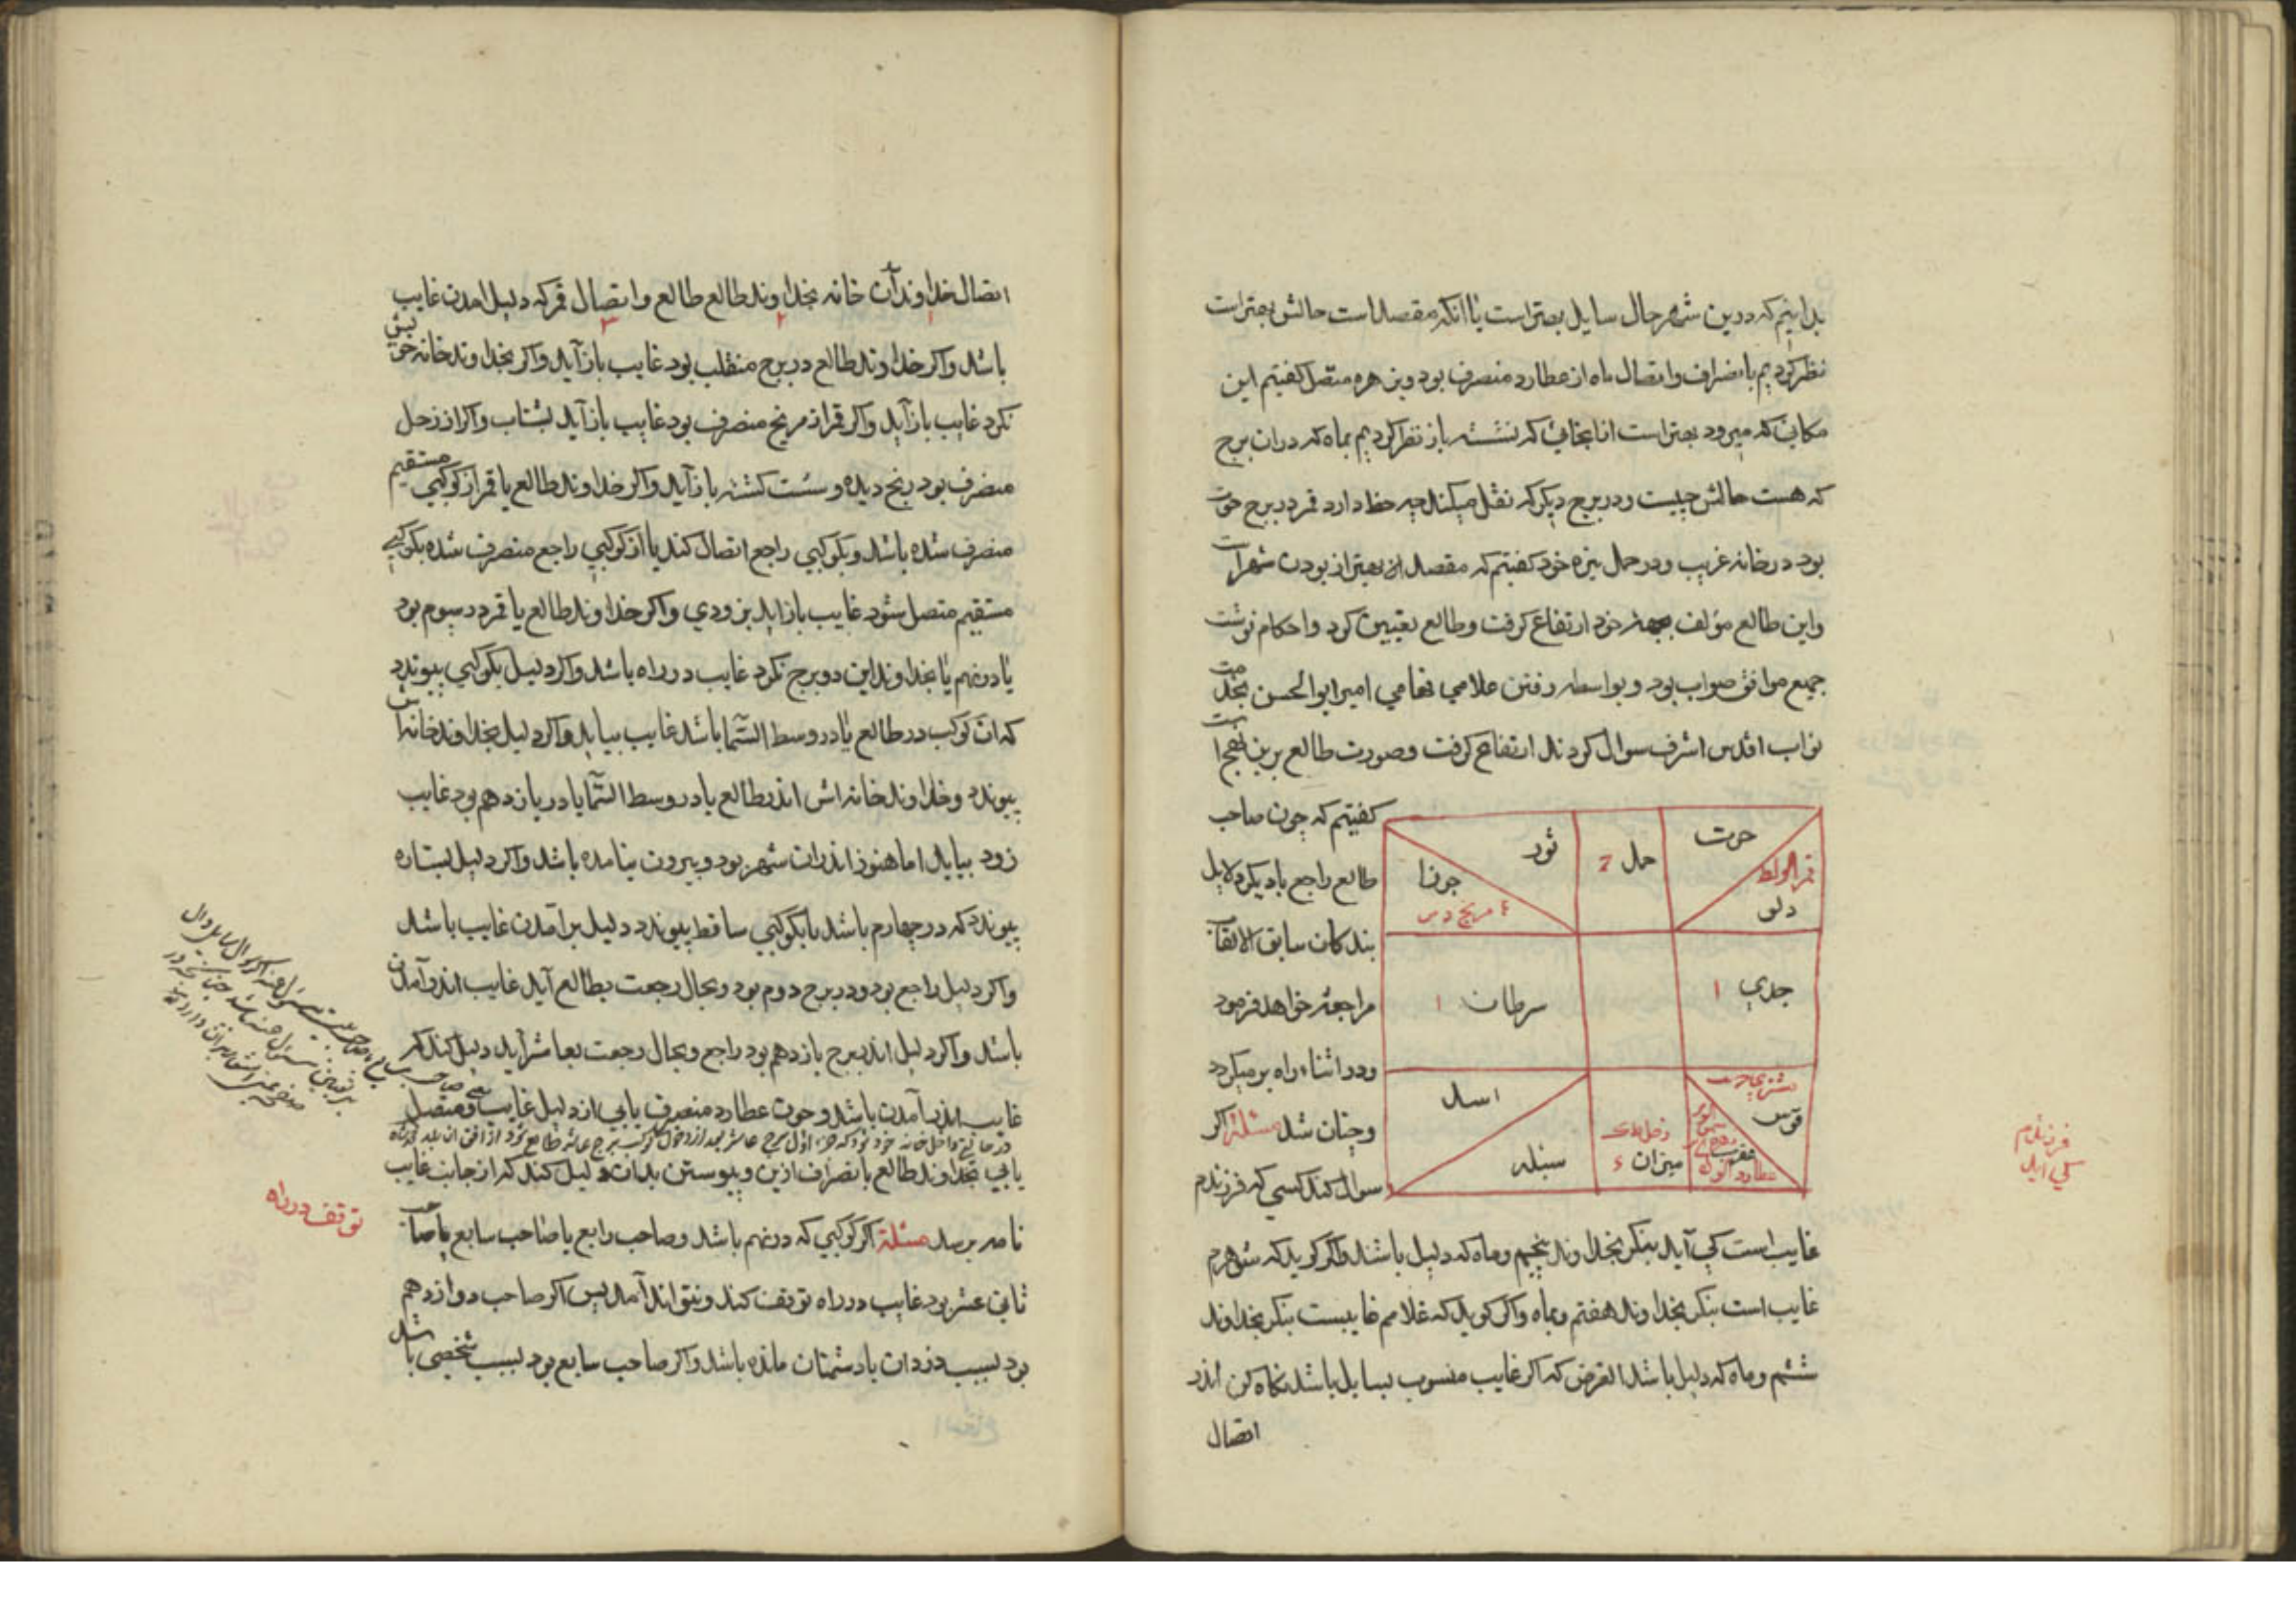 بدانیم که درین شهر حال سایل بهتر است یا آنکه مقصد است حالش بهتر است
نظر کردیم بانصراف و اتصال ماه از عطارد منصرف بود و بزهره متصل کفتیم این
مکانی که میرود بهتر است از انجائی که نشسته باز نظر کردیم بماه که در ان برج
که هست حالش چیست و در برج دیکر که نقل میکند چه حظ دارد قمر در برج حوت
بود در خانه غریب و در حمل کفتیم که مقصد بهتر از بودن شهر است
و این طالع مؤلف بجهة خود ارتفاع کرفت و طالع تعیین کرد و احکام نوشت
جمیع موافق صواب بود و بواسطه رفتن علامی فهامی امیر ابوالحسن بخدمت
نواب اقدس اشرف سوال کردند ارتفاع کرفت و صورت طالع برین نهج است
کفتیم که چون صاحب
طالع راجع با دیکر دلایل
بندکان سابق الالقاب
مراجعه خواهد فرمود
و در اثناء راه برمیکردد
و چنان شد مسئلة اکر
سوال کند کسی که فرزندم
حوت
دلو
حمل
ثور
جوزا
جدی ۱
سرطان ۱
قوس
عقرب
میزان
اسد
سنبله
غایب است کی آید بنکر بخداوند پنجم و ماه که دلیل باشند و اکر کوید که شوهرم
غایب است بنکر بخداوند هفتم و بماه و اکر کوید که غلامم غایبست بنکر بخداوند
ششم و ماه که دلیل باشد الغرض که اکر غایب منسوب بسایل باشد نکاه کن اندر
اتصال
فرزندم
کی اید
اتصال خداوند آن خانه بخداوند طالع طالع و اتصال قمر که دلیل امدن غایب
باشد و اکر خداوند طالع در برج منقلب بود غایب باز آید و اکر بخداوند خانه خویش
نکرد غایب باز آید و اکر قمر از مریخ منصرف بود غایب باز آید بشتاب و اکر از زحل
منصرف بود رنج دیده و سست کشته باز آید و اکر خداوند طالع یا قمر از کوکبی مستقیم
منصرف شده باشد و بکوکبی راجع اتصال کند یا از کوکبی راجع منصرف شده بکوکبی
مستقیم متصل شود غایب باز اید بزودی و اکر خداوند طالع یا قمر در سیوم بود
یا در نهم یا بخداوند این دو برج نکرد غایب در راه باشد و اکر دلیل بکوکبی پیوندد
که ان کوکب در طالع یا در وسط السما باشد غایب بیاید و اکر دلیل بخداوند خانه اش
پیوندد و خداوند خانه اش اندر طالع یا در وسط السما یا در یازدهم بود غایب
زود بیاید اما هنوز اندران شهر بود و بیرون نیامده باشد و اکر دلیل بستاره
پیوندد که در چهارم باشد یا بکوکبی ساقط پیوندد دلیل بر آمدن غایب باشد
و اکر دلیل راجع بود و در برج دوم بود و بحال رجعت بطالع آید غایب اندر آمدن
باشد و اکر دلیل اندر برج یازدهم بود راجع و بحال رجعت بعاشر آید دلیل کند که
غایب اندر آمدن باشد و چون عطارد منصرف یابی از دلیل غایب و متصل
یابی بخداوند طالع بانصراف ازین و پیوستن بدان دلیل کند که از جانب غایب
نامه برسد مسئلة اکر کوکبی که در نهم باشد و صاحب رابع یا صاحب سابع یا صاحب
ثانی عشر بود غایب در راه توقف کند و نتواند آمد پس اکر صاحب دوازدهم
بود بسبب دزدان یا دشمنان مانده باشد و اکر صاحب سابع بود بسبب شخصی باشد
توقف در راه